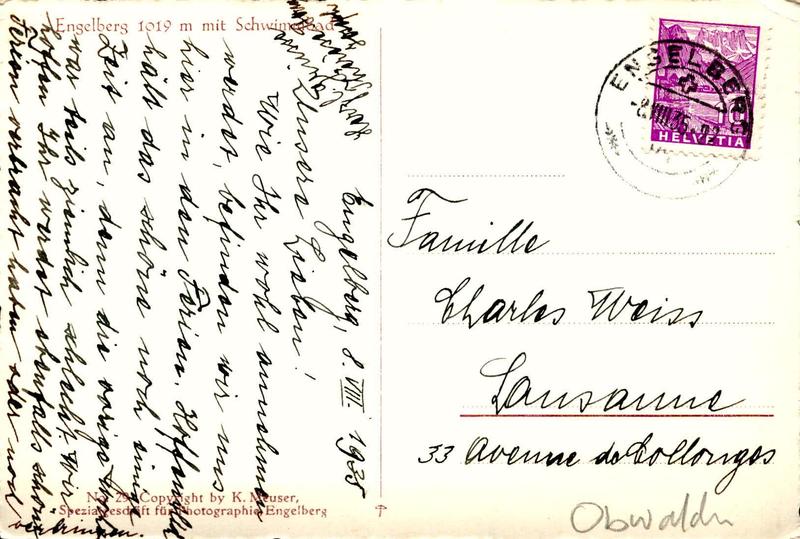 Engelberg 1019 m mit Schwimmbad
Engelberg, 8. VIII. 1935
Unsere Lieben!
Wie Ihr wohl annehmen
werdet, befinden wir uns
hier in den Ferien. Hoffentlich
hält das schöne noch einige
Zeit an, denn die vorige
war teils ziemlich schlecht. Wir
hoffen Ihr werdet ebenfalls schöne
Ferien verbracht haben oder noch
verbringen.
No. 29 Copyright by K. Meuser,
Spezialgeschäft für Photographie Engelberg
ENGELBERG
-8.VIII.35
HELVETIA
10
Famille
Charles Weiss
Lausanne
33 Avenue de Collonges
Obwalden